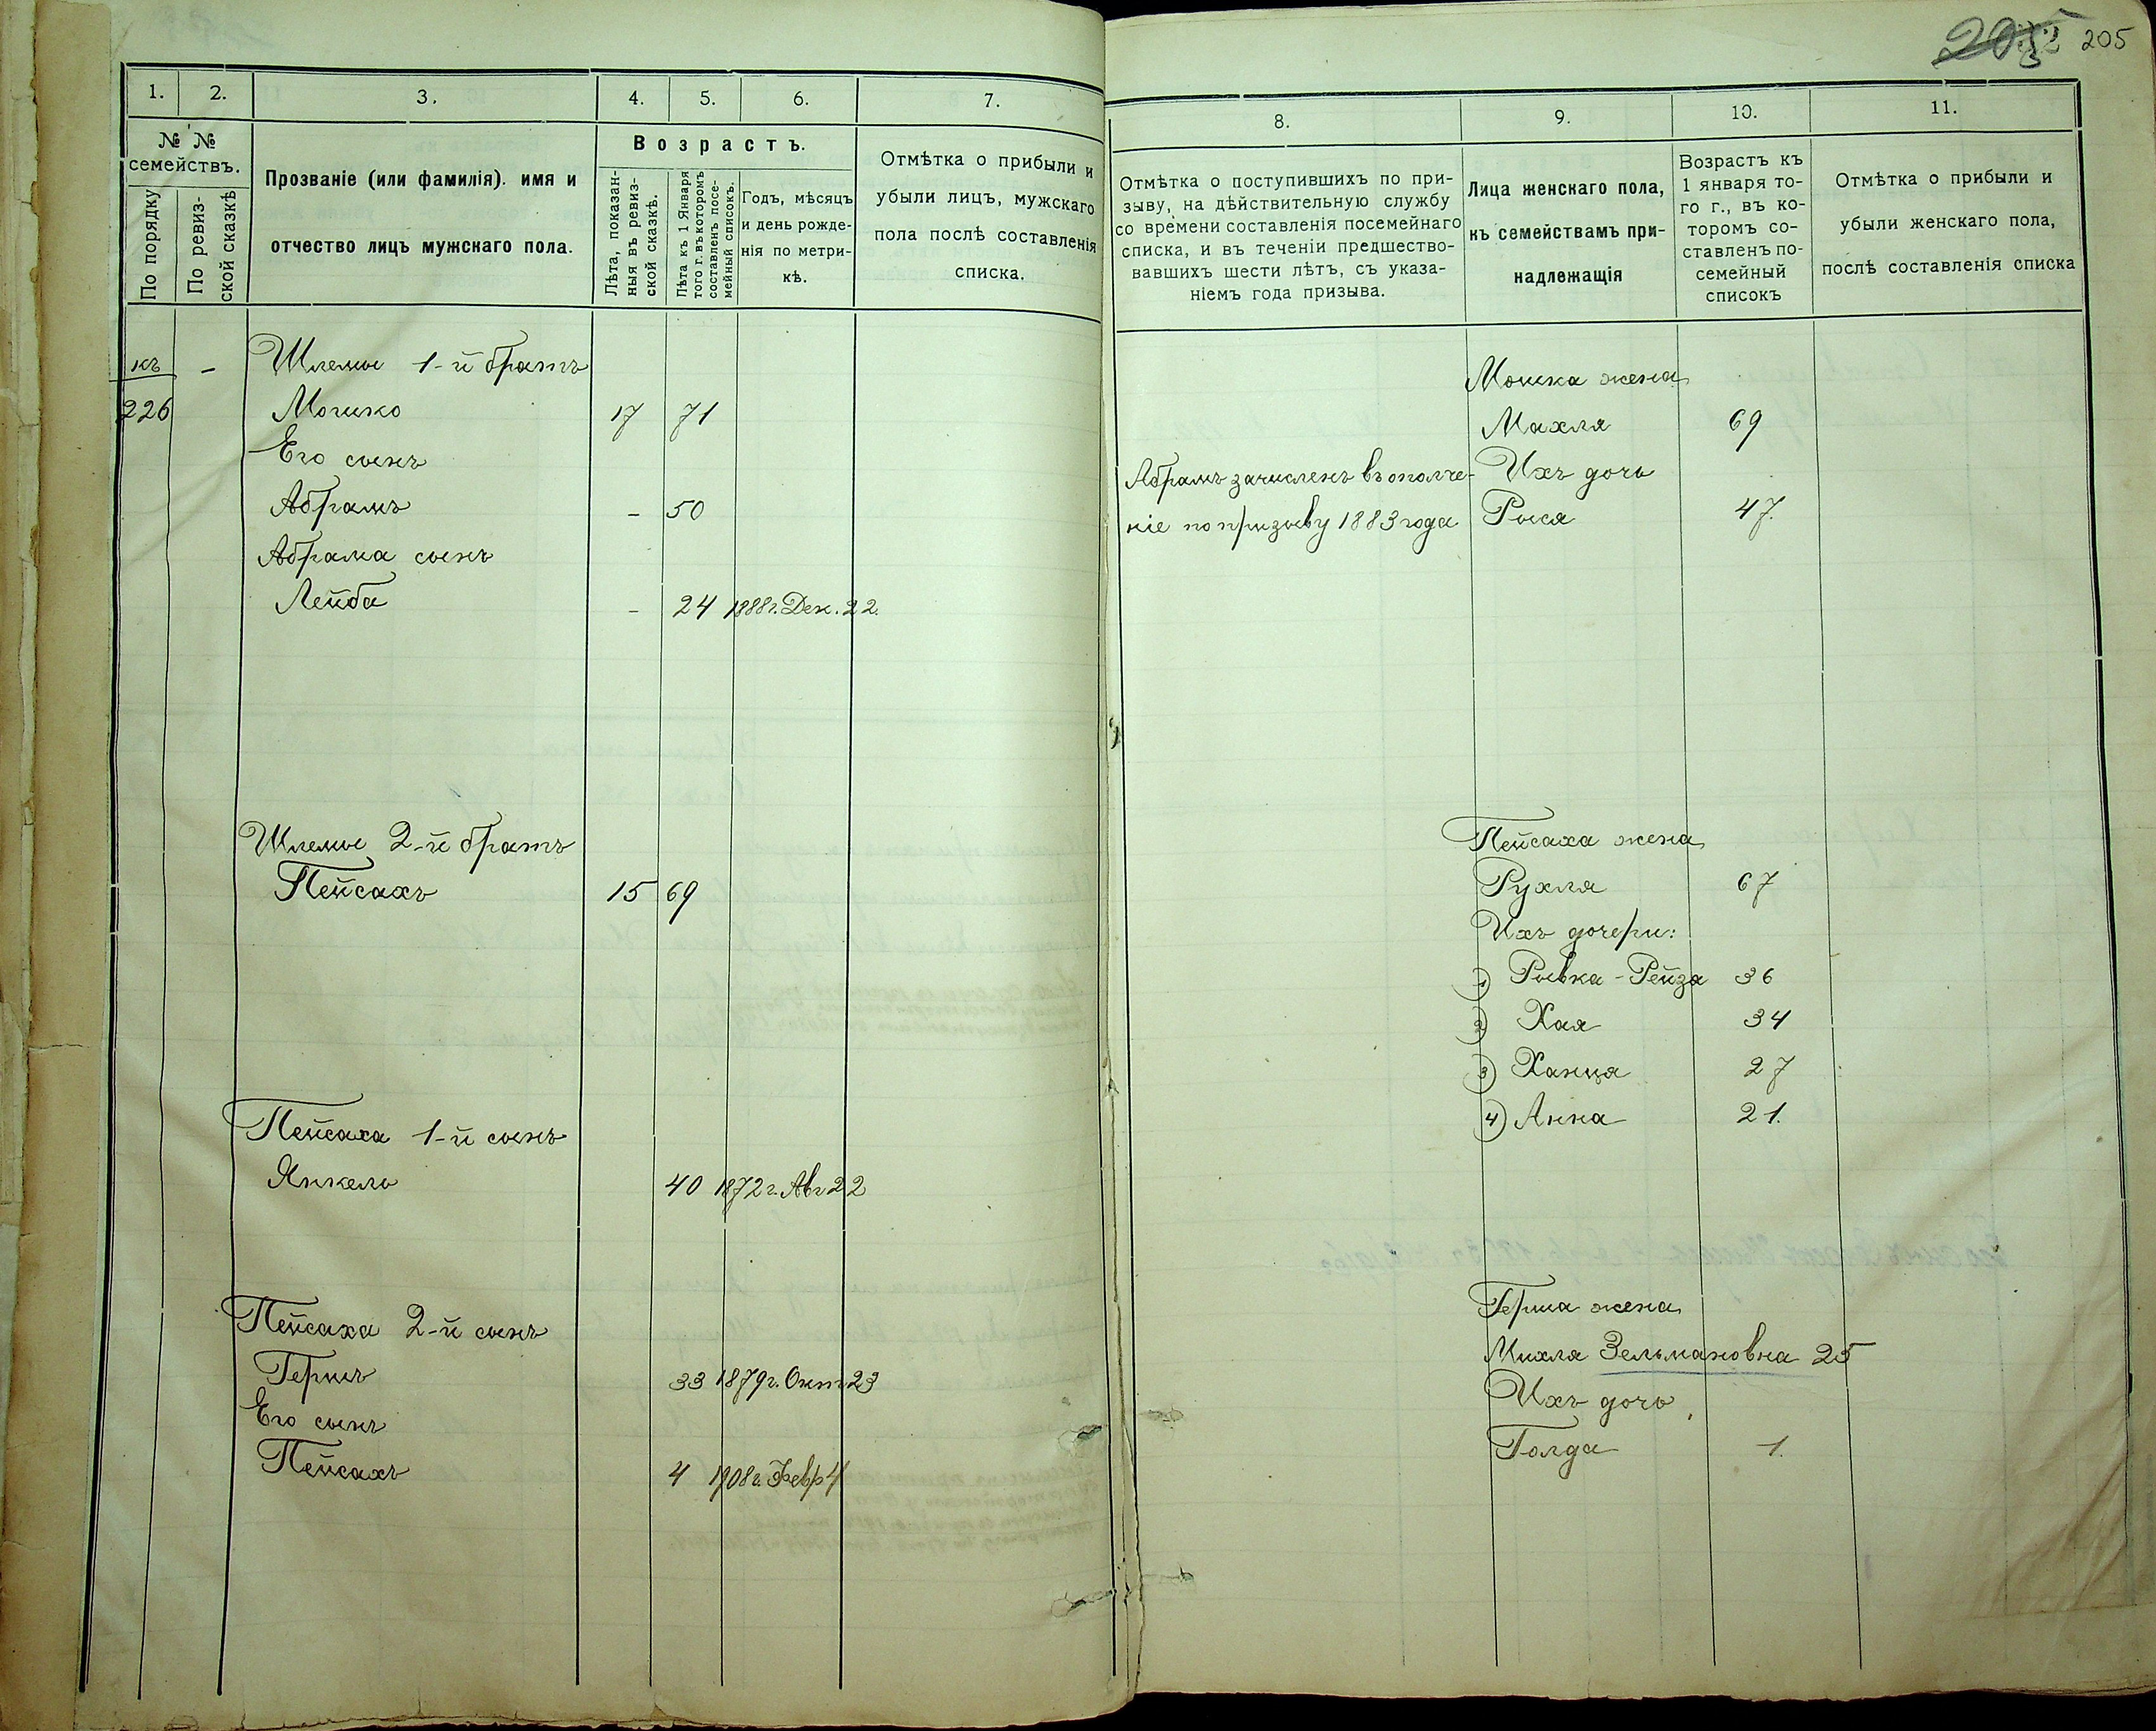 205
1. 2. 3. 4. 5. 6. 7.
№ №
семействъ.
По порядку
По ревиз-
ской сказкѣ
Прозваніе (или фамилія). имя и
отчество лицъ мужскаго пола.
Возрастъ.
Лѣта, показан-
ныя въ ревиз-
ской сказкѣ.
Лѣта къ 1 Января
того г. въ которомъ
составленъ посе-
мейный списокъ.
Годъ, мѣсяцъ
и день рожде-
нія по метри-
кѣ.
Отмѣтка о прибыли и
убыли лицъ, мужскаго
пола послѣ составленія
списка.
къ - Шлемы 1-й братъ
226 Мошко 17 71
Его сынъ
Абрамъ - 50
Абрама сынъ
Лейба - 24 1888 г. Дек. 22.
Шлемы 2-й братъ
Пейсахъ 15 69
Пейсаха 1-й сынъ
Янкель 40 1872 г. Авг 22
Пейсаха 2-й сынъ
Гершъ 33 1879 г. Окт 23
Его сынъ
Пейсахъ 4 1908 г. Февр 4
8. 9. 10. 11.
Отмѣтка о поступившихъ по при-
зыву, на дѣйствительную службу
со времени составленія посемейнаго
списка, и въ теченіи предшество-
вавшихъ шести лѣтъ, съ указа-
ніемъ года призыва.
Лица женскаго пола,
къ семействамъ при-
надлежащія
Возрастъ къ
1 января то-
го г., въ ко-
торомъ со-
ставленъ по-
семейный
списокъ
Отмѣтка о прибыли и
убыли женскаго пола,
послѣ составленія списка
Мошка жена
Махля 69
Абрамъ зачисленъ въ ополче- Ихъ дочь
ніе по призыву 1883 года Рыся 47.
Пейсаха жена
Рухля 67
Ихъ дочери:
1) Рывка-Рейза 36
2) Хая 34
3) Ханця 27
4) Анна 21.
Герша жена
Михля Зельмановна 25
Ихъ дочь
Голда 1.